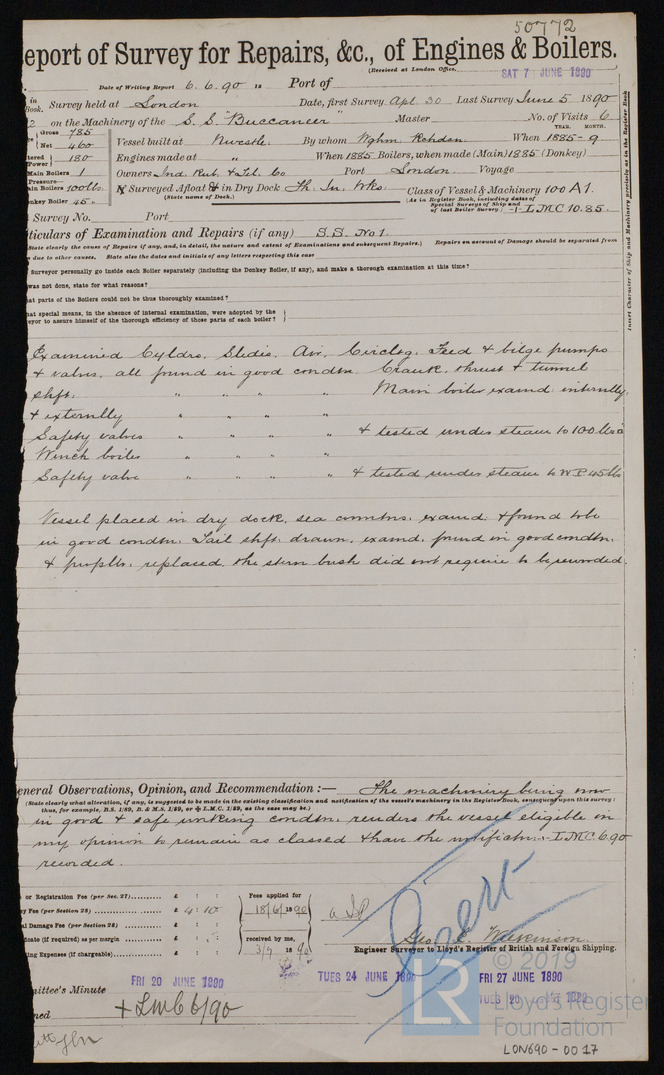 50772
eport of Survey for Repairs, &c., of Engines & Boilers.
(Received at London Office,
SAT 7 JUNE 1890
Date of Writing Report 6.6.90 18 Port of
in
Book. Survey held at London Date, first Survey Apl 30 Last Survey June 5 1890
on the Machinery of the S.S. "Buccaneer" Master No. of Visits 6
YEAR. MONTH.
Gross 785
Net 460
Vessel built at Nwcstle. By whom Wghm Rchdsn. When 1885-9
180 Engines made at " When 1885 Boilers, when made (Main) 1885 (Donkey)
Main Boilers 1 Owners Ind. Rub. & Tel. Co Port London. Voyage
Pressure—
ain Boilers 100lbs
nkey Boiler 45 "
Surveyed Afloat & in Dry Dock Th. In. Wks. Class of Vessel & Machinery 100 A1.
(State name of Dock.)
(As in Register Book, including dates of
Special Surveys of Ship and
of last Boiler Survey) L.M.C 10.85.
Survey No. Port
ticulars of Examination and Repairs (if any) S.S. No 1.
State clearly the cause of Repairs if any, and, in detail, the nature and extent of Examinations and subsequent Repairs.) Repairs on account of Damage should be separated from
due to other causes. State also the dates and initials of any letters respecting this case
Surveyor personally go inside each Boiler separately (including the Donkey Boiler, if any), and make a thorough examination at this time?
was not done, state for what reasons?
at parts of the Boilers could not be thus thoroughly examined?
hat special means, in the absence of internal examination, were adopted by the
veyor to assure himself of the thorough efficiency of those parts of each boiler?
Insert Character of Ship and Machinery precisely as in the Register Book
Examined Cyldrs. Slides. Air, Circltg. Feed & bilge pumps
& valves. all found in good condtn. Crank, thrust & tunnel
shft. " " " " Main boiler examd. internally
& externally " " " "
Safety valves " " " " & tested under steam to 100 lbs
Winch boiler " " " "
Safety valve " " " " & tested under steam to W.P. 45 lbs
Vessel placed in dry dock, sea conntns. examd. & found to be
in good condtn. Tail shft. drawn, examd. found in good condtn.
& propllr. replaced, the stern bush did not require to be rewooded.
eneral Observations, Opinion, and Recommendation :— The machinery being now
(State clearly what alteration, if any, is suggested to be made in the existing classification and notification of the vessel's machinery in the Register Book, consequent upon this survey:
thus, for example, B.S. 1/89, B. & M.S. 1/89, or L.M.C. 1/89, as the case may be.)
in good & safe working condtn. renders the vessel eligible in
my opinion to remain as classed & have the notifictn. L.M.C. 6.90
recorded.
or Registration Fee (per Sec. 27) £ : :
y Fee (per Section 28) £ 4 : 10
al Damage Fee (per Section 28) £ : :
icate (if required) as per margin £ : :
ling Expenses (if chargeable) £ : :
Fees applied for
18/6/1890
received by me,
3/7 1890
Cert
Geo. E. Wilkinson
Engineer Surveyor to Lloyd's Register of British and Foreign Shipping.
FRI 20 JUNE 1890
TUES 24 JUNE 1890
FRI 27 JUNE 1890
mittee's Minute
ned + LMC 6/90
© 2019
LR
Lloyd's Register
Foundation
LON690-0017